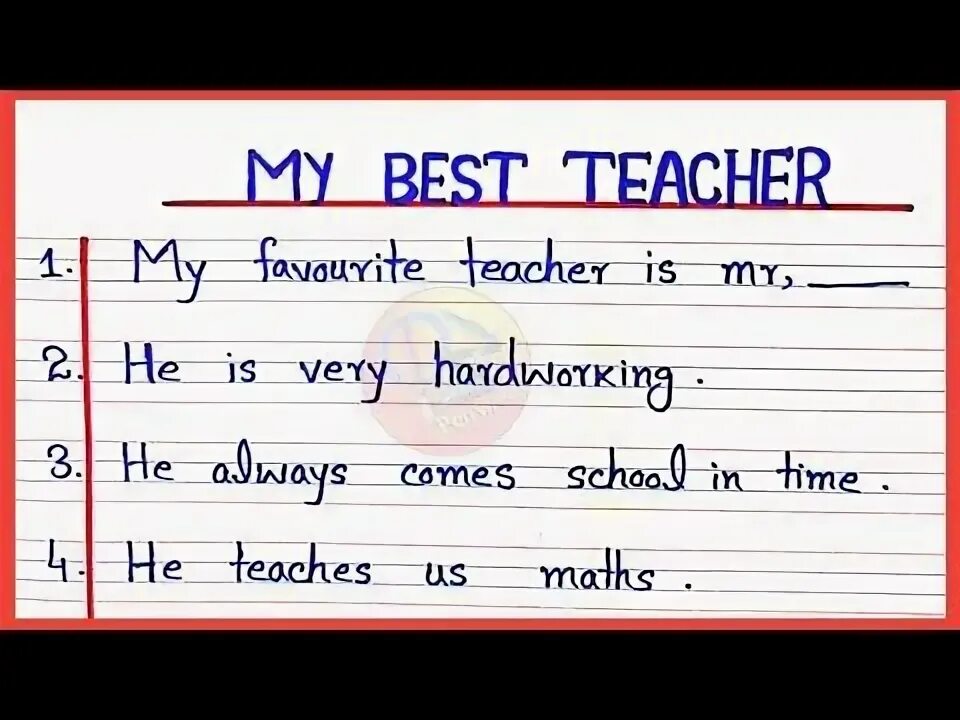 MY BEST TEACHER
1. My favourite teacher is mr, ______
2. He is very hardworking.
3. He always comes school in time.
4. He teaches us maths.